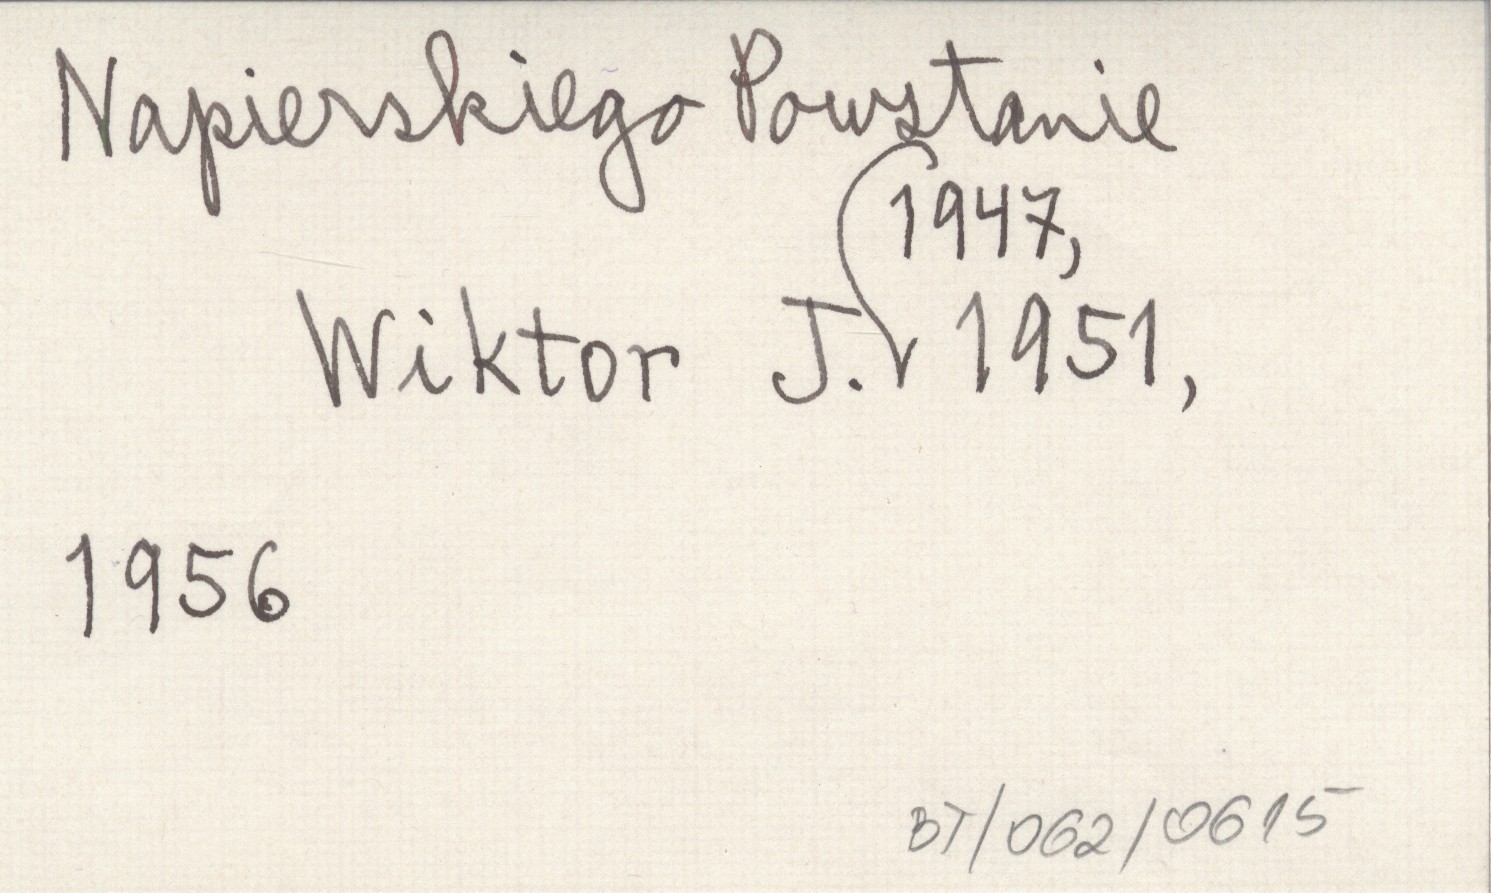 Napierskiego Powstanie
1947,
Wiktor J. 1951,
1956
BT/062/0615